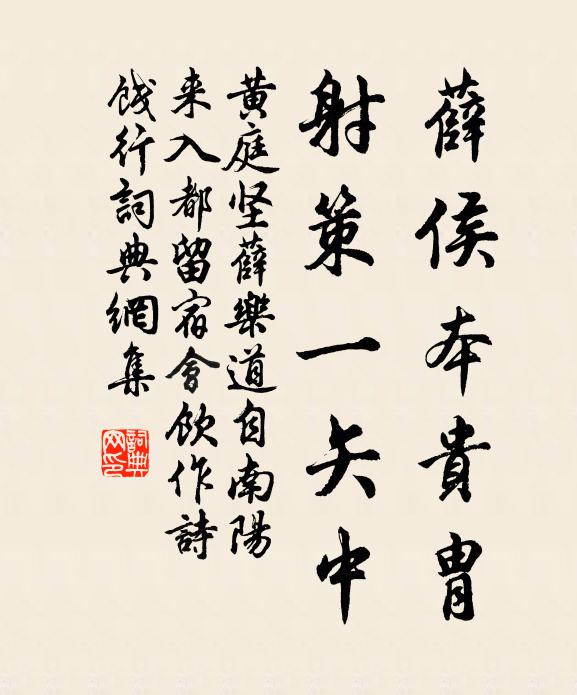 薛侯本貴胄
射策一矢中
黃庭坚薛樂道自南陽
来入都留宿會飲作詩
餞行詞典網集
詞典网印